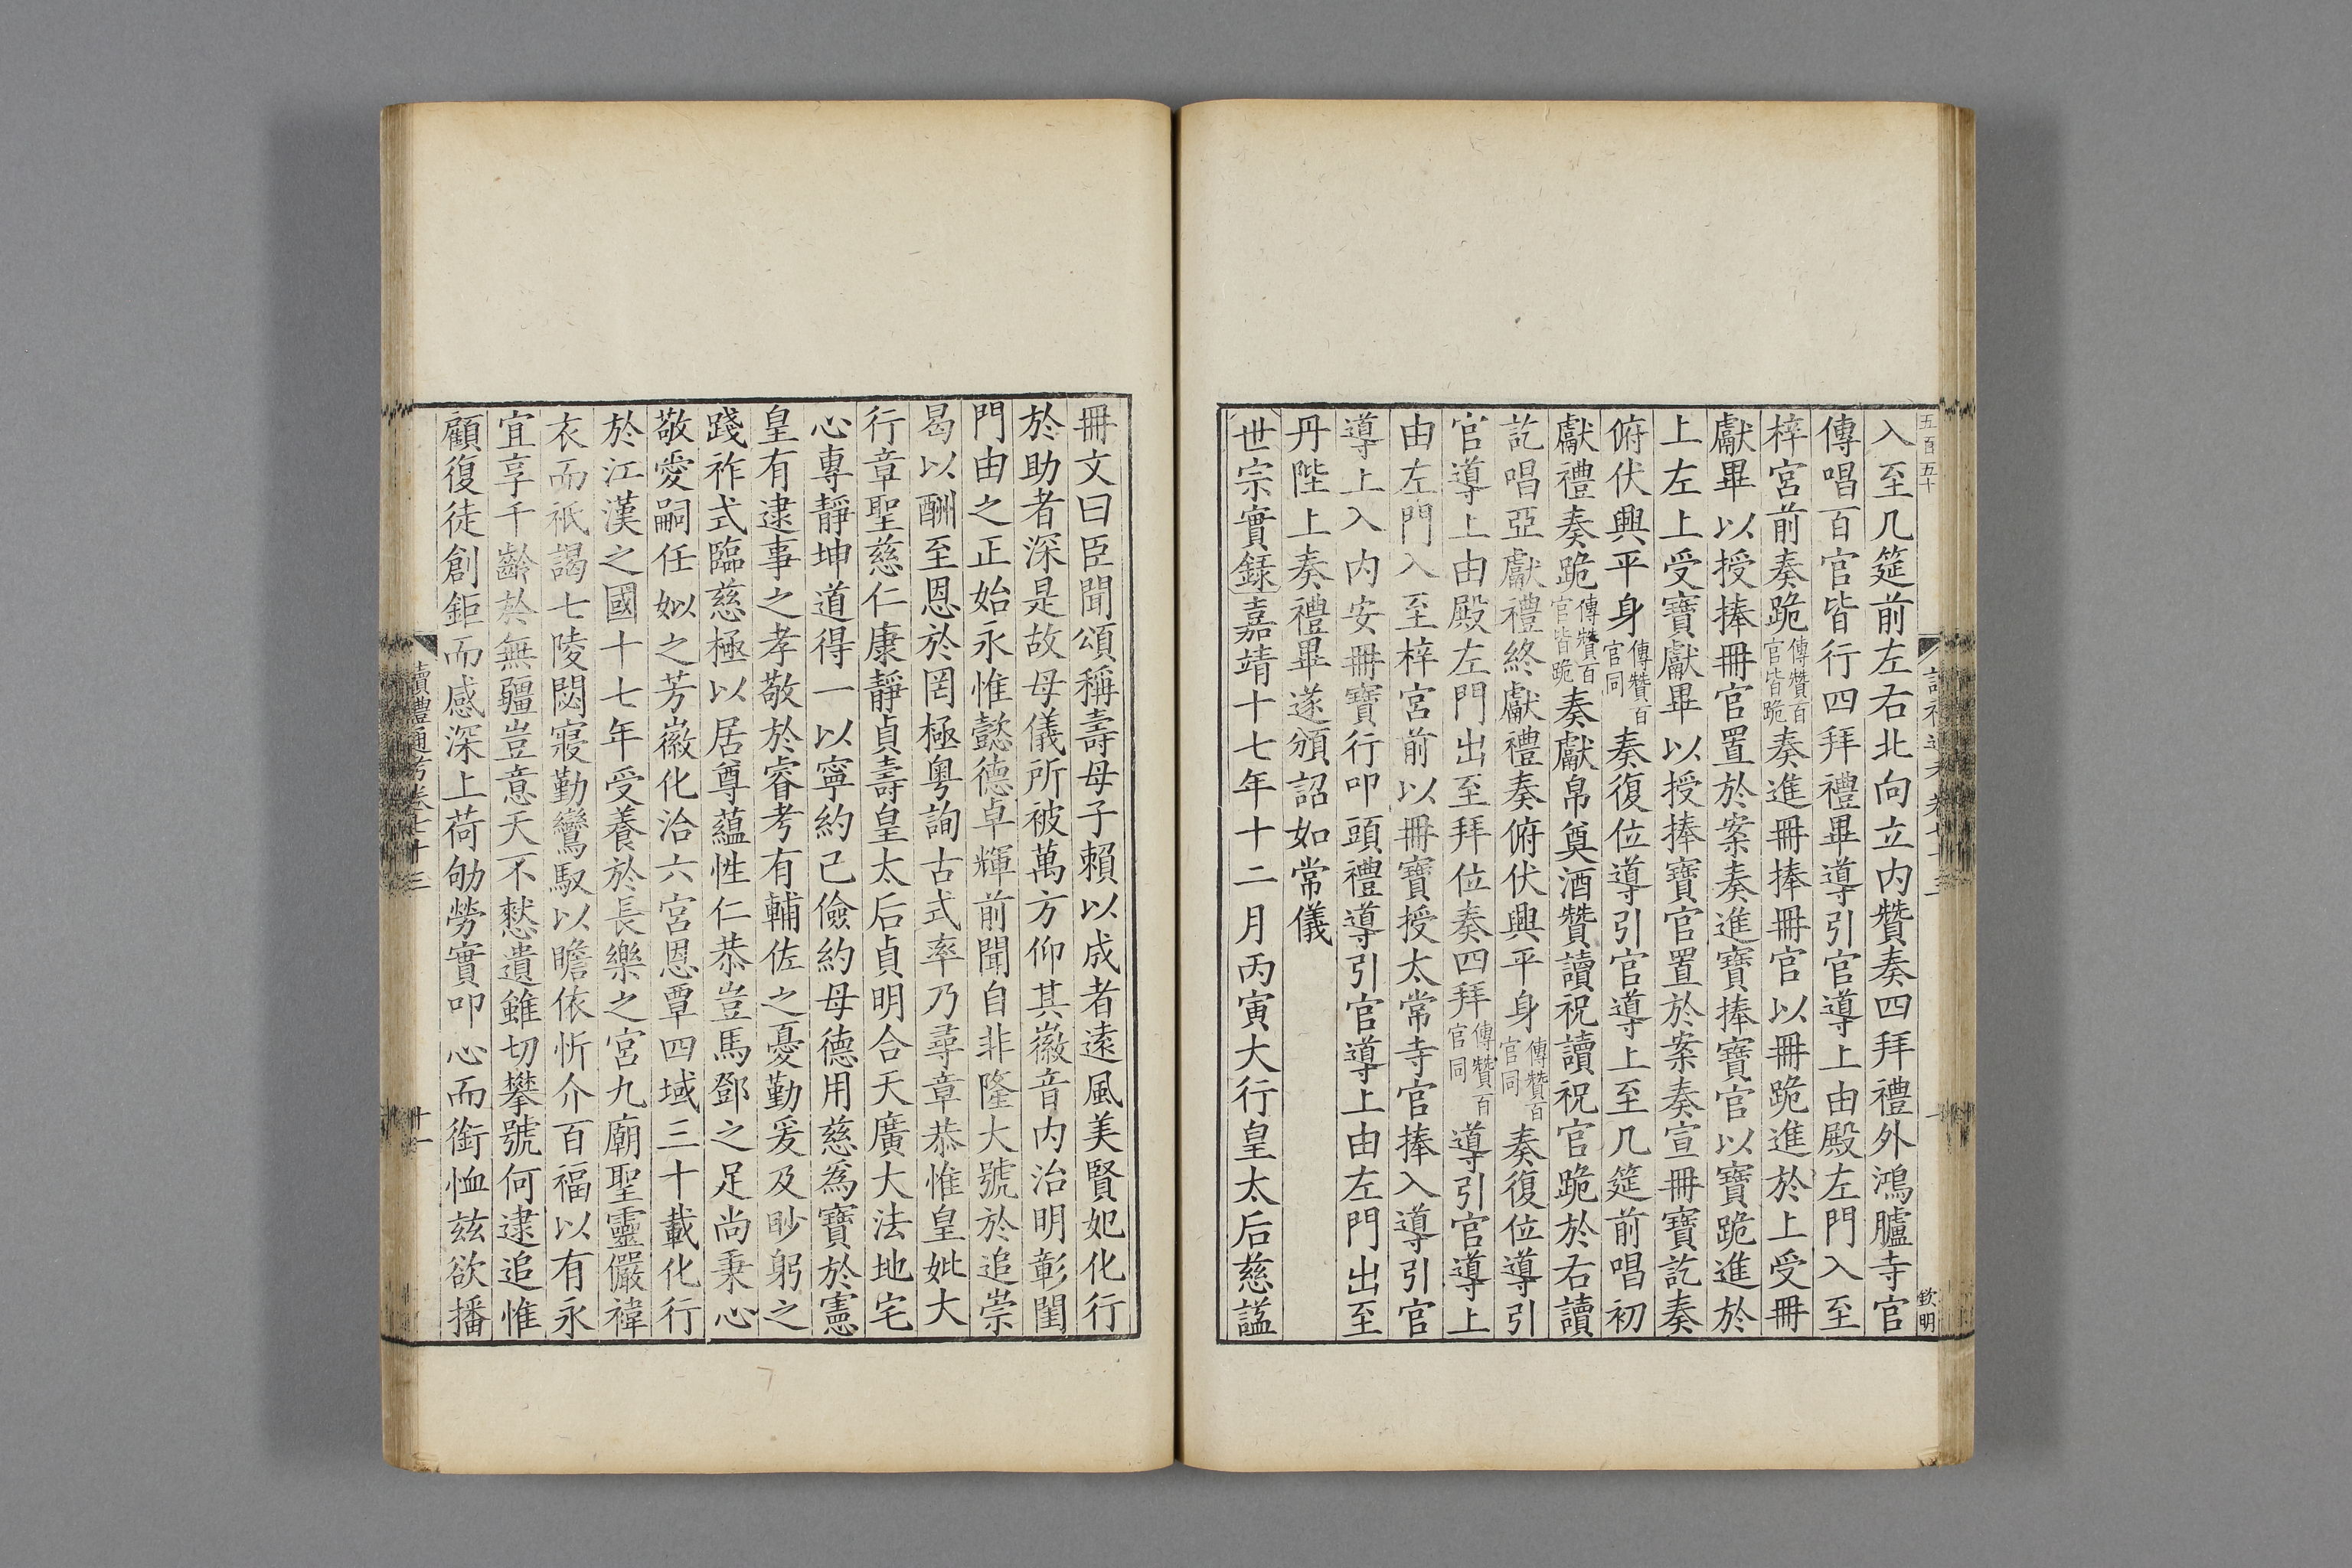 五百五十
入至几筵前左右北向立内贊奏四拜禮外鴻臚寺官
傳唱百官皆行四拜禮畢導引官導上由殿左門入至
梓宮前奏跪傳贊百官皆跪奏進冊捧冊官以冊跪進於上受冊
獻畢以授捧冊官置於案奏進寶捧寶官以寶跪進於
上左上受寶獻畢以授捧寶官置於案奏宣冊寶訖奏
俯伏興平身傳贊百官同奏復位導引官導上至几筵前唱初
獻禮奏跪傳贊百官皆跪奏獻帛奠酒贊讀祝讀祝官跪於右讀
訖唱亞獻禮終獻禮奏俯伏興平身傳贊百官同奏復位導引
官導上由殿左門出至拜位奏四拜傳贊百官同導引官導上
由左門入至梓宮前以冊寶授太常寺官捧入導引官
導上入内安冊寶行叩頭禮導引官導上由左門出至
丹陛上奏禮畢遂頒詔如常儀
世宗實錄嘉靖十七年十二月丙寅大行皇太后慈謚
欽明
冊文曰臣聞頌稱壽母子賴以成者遠風美賢妃化行
於助者深是故母儀所被萬方仰其徽音内治明彰閨
門由之正始永惟懿德卓輝前聞自非隆大號於追崇
曷以酬至恩於罔極粤詢古式率乃尋章恭惟皇妣大
行章聖慈仁康靜貞壽皇太后貞明合天廣大法地宅
心專靜坤道得一以寧約己儉約母德用慈為寶於憲
皇有逮事之孝敬於睿考有輔佐之憂勤爰及眇躬之
踐祚式臨慈極以居尊蘊性仁恭豈馬鄧之足尚秉心
敬愛嗣任姒之芳徽化洽六宮恩覃四域三十載化行
於江漢之國十七年受養於長樂之宮九廟聖靈儼褘
衣而祇謁七陵閟寢勤鸞馭以瞻依忻介百福以有永
宜享千齡於無疆豈意天不憖遺雖切攀號何逮追惟
顧復徒創鉅而感深上荷劬勞實叩心而銜恤兹欲播
讀禮通考卷七十三
十一